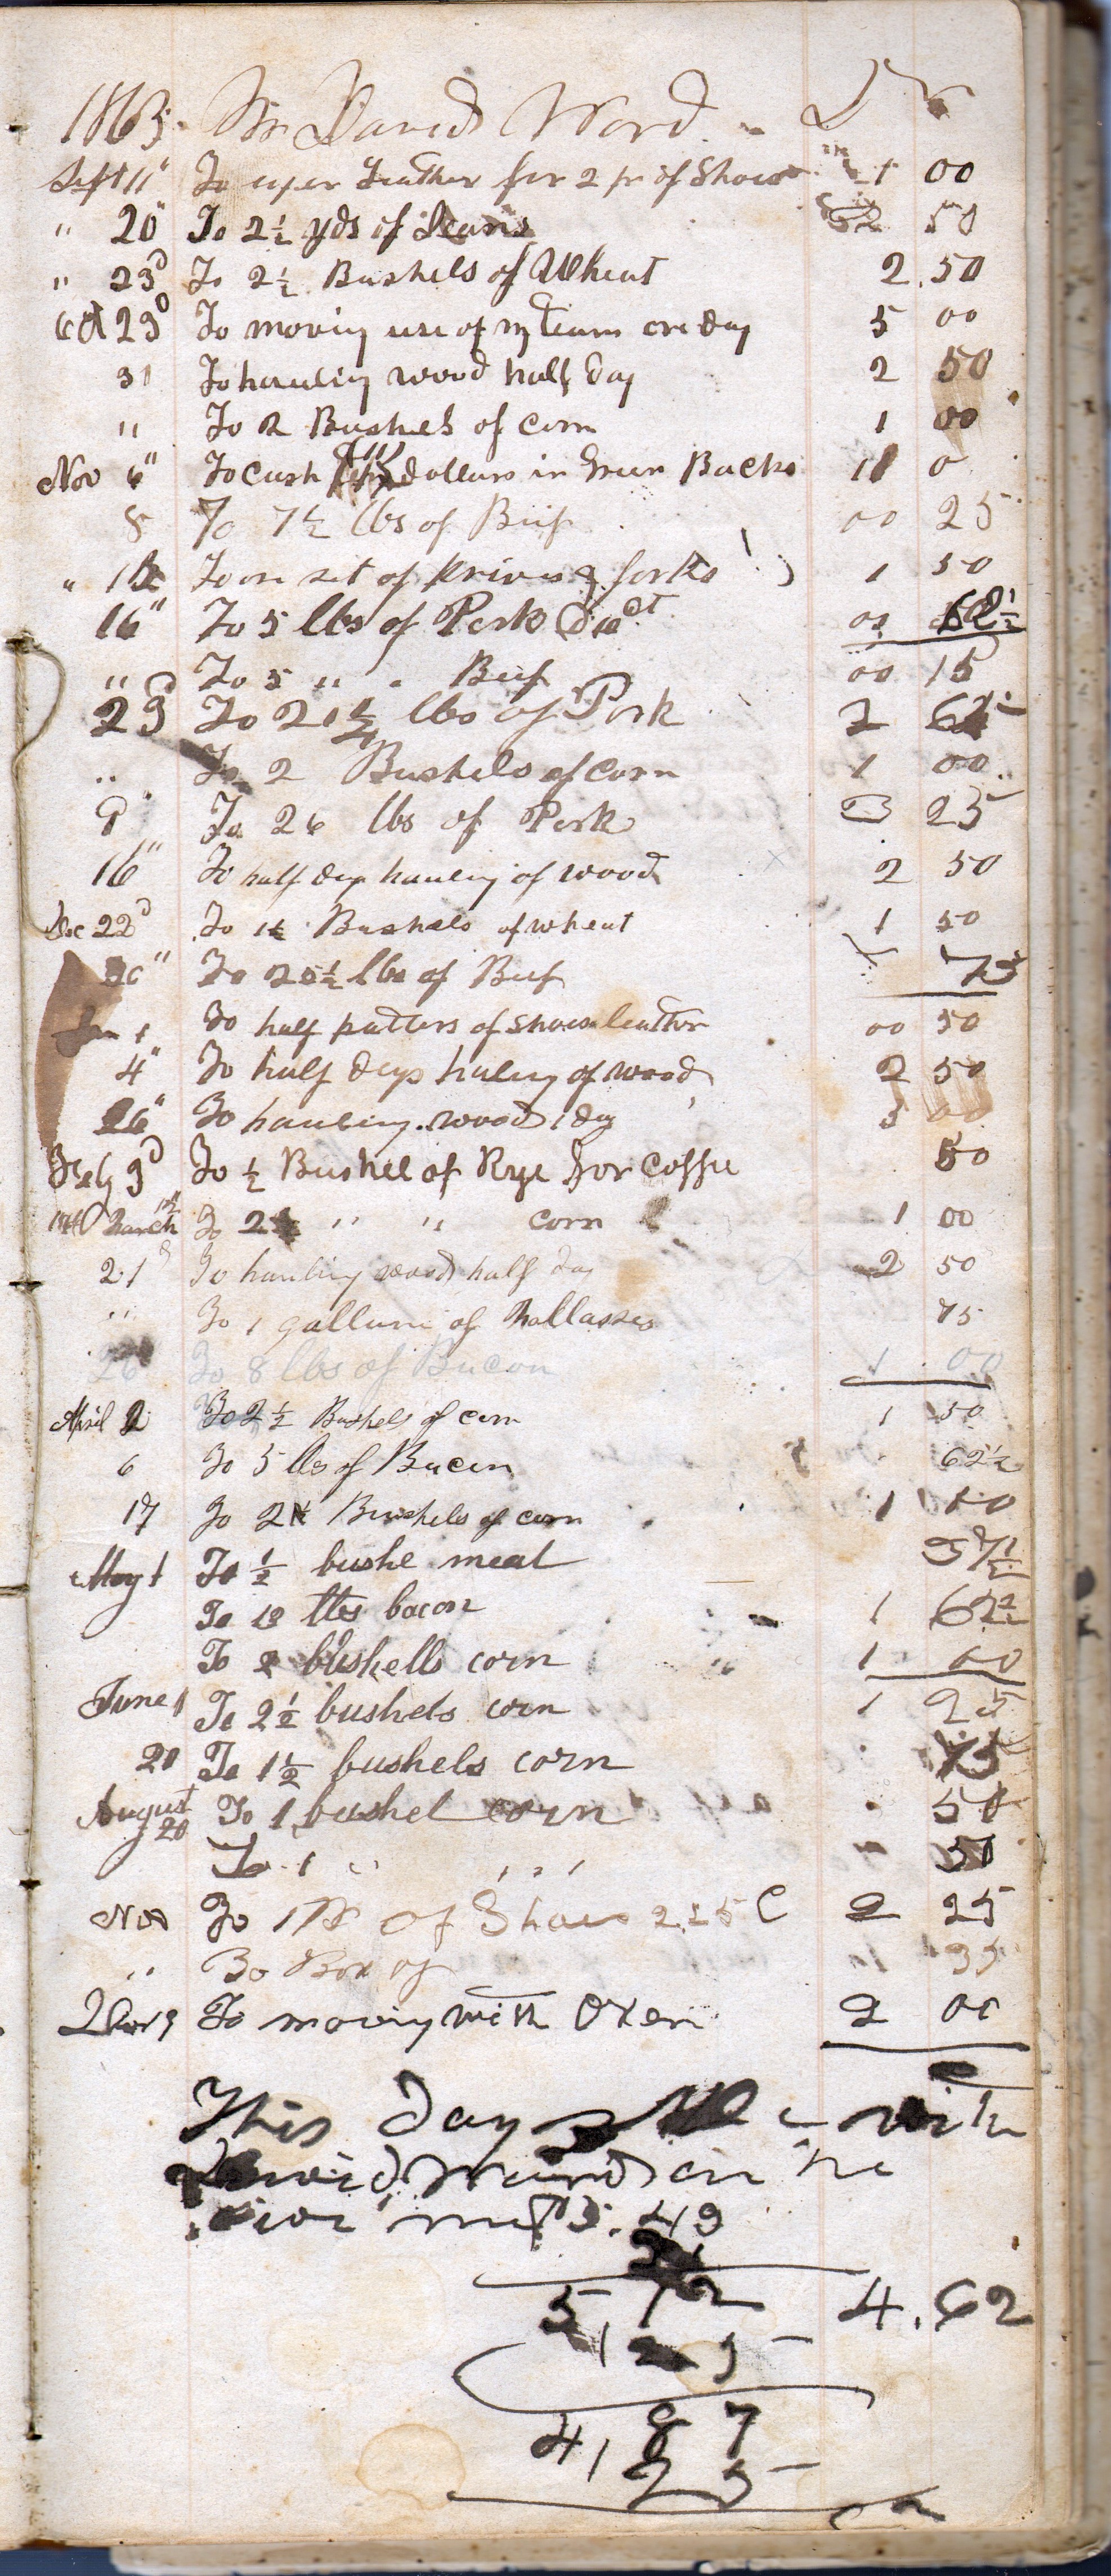 1863. Mr David Word - Dr
Sept 11" To uper Leather for 2 pr of Shoes 1 00
" 20" To 2½ yds of Jeans 2 50
" 23d To 2½ Bushels of Wheat 2.50
Oct 23d To moving use of my team one day 5 00
31 To hauling wood half day 2 50
" To 2 Bushels of corn 1 00
Nov 6" To cash dollars in Green Backs
8 To 7½ lbs of Beef 00 25
" To one set of knives & forks 1 50
16" To 5 lbs of Pork 00 62½
" To 5 " " Beef 00 15
23d To 21 lbs of Pork 2 62½
" To 2 Bushels of corn 1 00
9" To 26 lbs of Pork 3 25
16" To half day hauling of wood 2 50
Dec 22d To 1½ Bushels of wheat 1 50
30" To 25½ lbs of Beef 75
Jan 1 To half patters of Shoes leather 00 50
4" To half days haling of wood 2 50
26" To hauling wood 1 day 5 00
Feb 3d To ½ Bushel of Rye for Coffee 50
March To 2 " " corn 1 00
21 To hauling wood half day 2 50
" To 1 gallon of Mollasses 75
26 To 8 lbs of Bacon 1 00
April 2 To 2½ Bushels of corn 1 50
6 To 5 lbs of Bacon 62½
17 To 2 Bushels of corn 1 00
May 1 To ½ bushe meal 37½
To 13 lbs bacon 1 62½
To 2 bushells corn 1 00
June 1 To 2½ bushels corn 1 25
20 To 1½ bushels corn 75
August 20 To 1 bushel corn 50
To 1 " " 50
Nov To 1 Pr of Shoes 2.25 C 2 25
" To Box of 35
To moving with Oxen 2 00
This Day with
David on
me 5.49
5,12 4.62
4,87
25